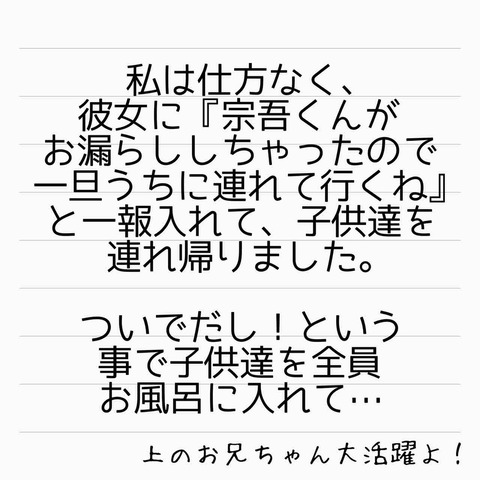 私は仕方なく、
彼女に『宗吾くんが
お漏らししちゃったので
一旦うちに連れて行くね』
と一報入れて、子供達を
連れ帰りました。
ついでだし！という
事で子供達を全員
お風呂に入れて…
上のお兄ちゃん大活躍よ！